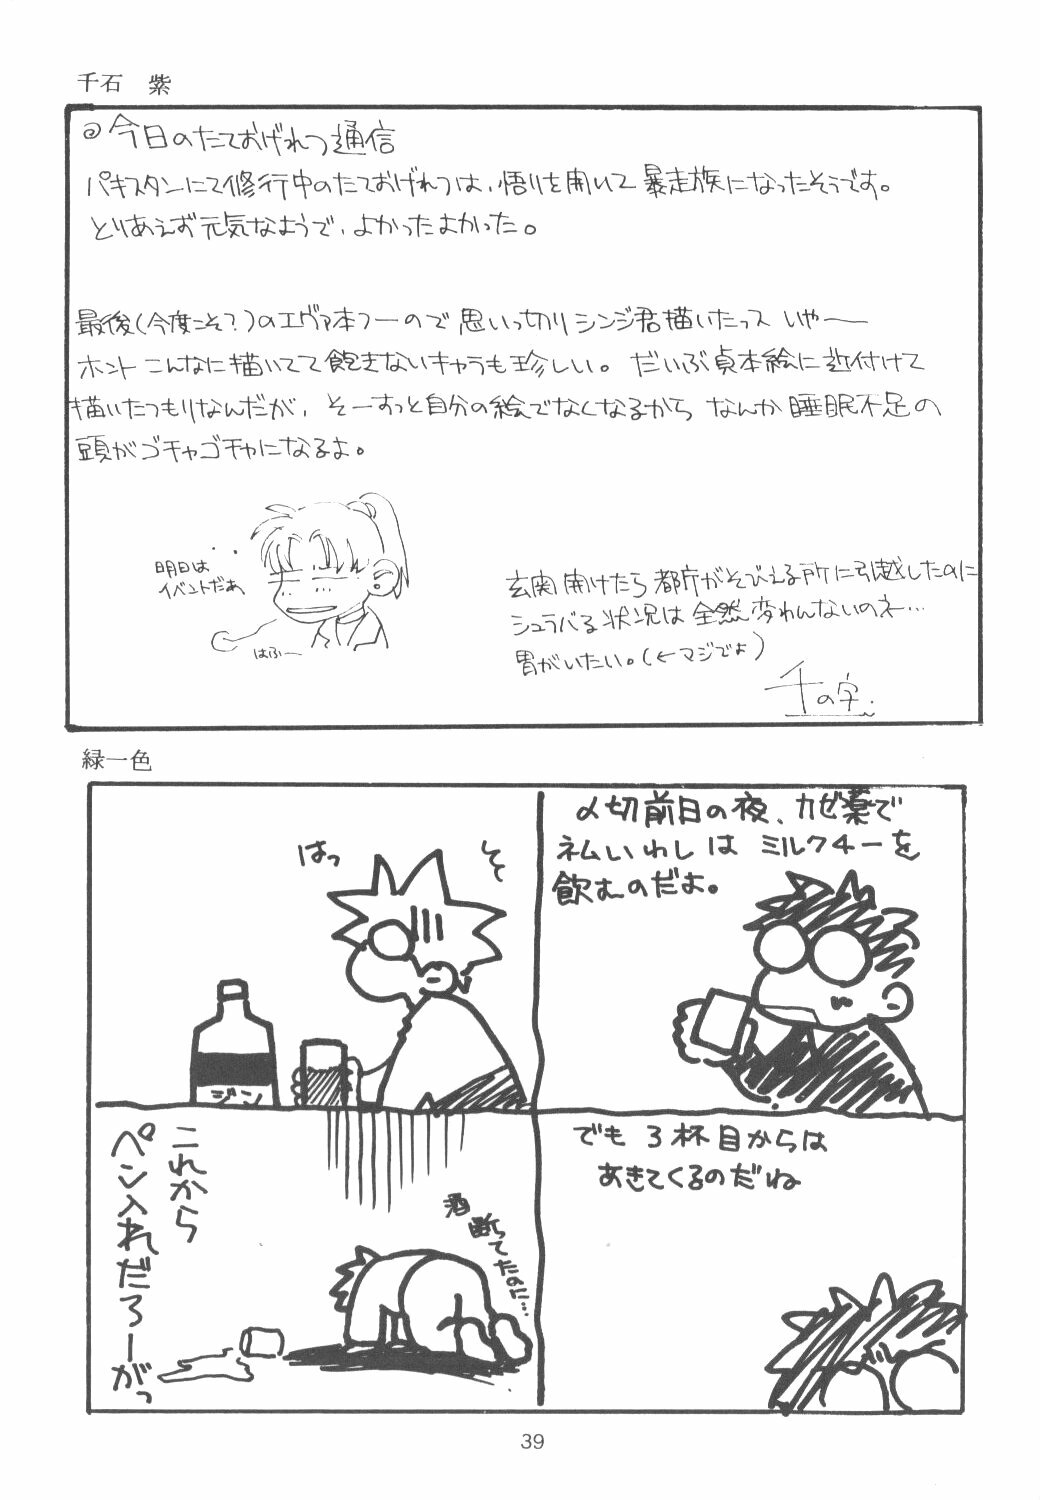 千石　紫
@今日のたておげれつ通信
パキスタンにて修行中のたておげれつは、悟りを開いて暴走族になったそうです。
とりあえず元気なようで、よかったよかった。
最後(今度こそ?)のエヴァ本つーので思いっ切りシンジ君描いたっス いやー
ホント こんなに描いてて飽きないキャラも珍しい。だいぶ貞本絵に近付けて
描いたつもりなんだが、そーすっと自分の絵でなくなるから なんか睡眠不足の
頭がゴチャゴチャになるよ。
明日は
イベントだぁ
はふー
玄関開けたら都庁がそびえる所に引越したのに
シュラバる状況は全然変わんないのネー…
胃がいたい。(←マジでよ)
千の字.
緑一色
〆切前日の夜、カゼ薬で
ネムいわしは ミルクチーを
飲むのだよ。
でも 3杯目からは
あきてくるのだね
はっ
そ
ジン
これから
ペン入れだろーがっ
酒
断ってたのに…
39